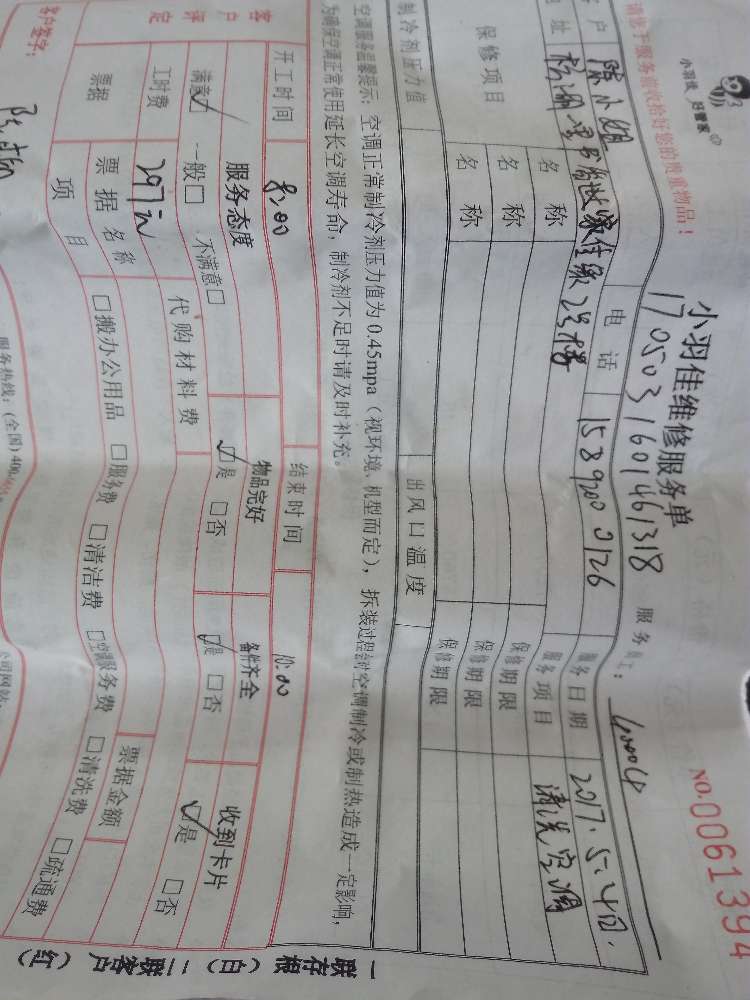 小羽佳 好管家
请您于服务前收拾好您的贵重物品！
小羽佳维修服务单
NO.0061394
1705031601461318 服务员工：
客户 陈小姐 电话 15890000126 服务日期 2017.5.4日.
地址 家佳缘2号楼 服务项目 清洗空调
保修项目 名称 保修期限
名称 保修期限
名称 保修期限
制冷剂压力值 出风口温度
空调服务温馨提示：空调正常制冷剂压力值为0.45mpa（视环境、机型而定），拆装过程会对空调制冷或制热造成一定影响，
为确保空调正常使用延长空调寿命，制冷剂不足时请及时补充。
开工时间 8:00 结束时间 10:00
客户评定 服务态度 物品完好 备件齐全 收到卡片
满意☑ 一般□ 不满意□ ☑是 □否 ☑是 □否 ☑是 □否
工时费 297元 代购材料费
票据 票据名称 票据金额
项目 □搬办公用品 □服务费 □清洁费 □空调服务费 □清洗费 □疏通费
客户签字：
服务热线：(全国)400
公司网站：
一联存根（白）二联客户（红）